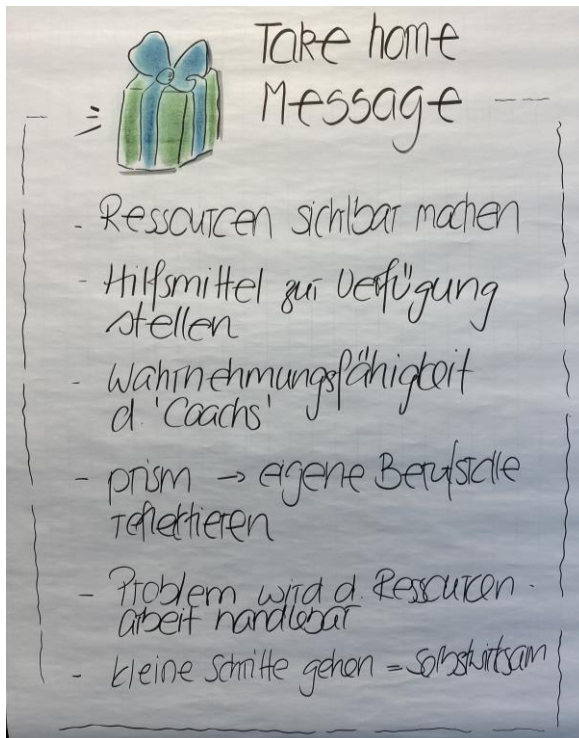 Take home
Message
- Ressourcen sichtbar machen
- Hilfsmittel zur Verfügung
stellen
- Wahrnehmungsfähigkeit
d. 'Coachs'
- prism → eigene Berufsrolle
reflektieren
- Problem wird d. Ressourcen-
arbeit handlebar
- kleine Schritte gehen = selbstwirksam